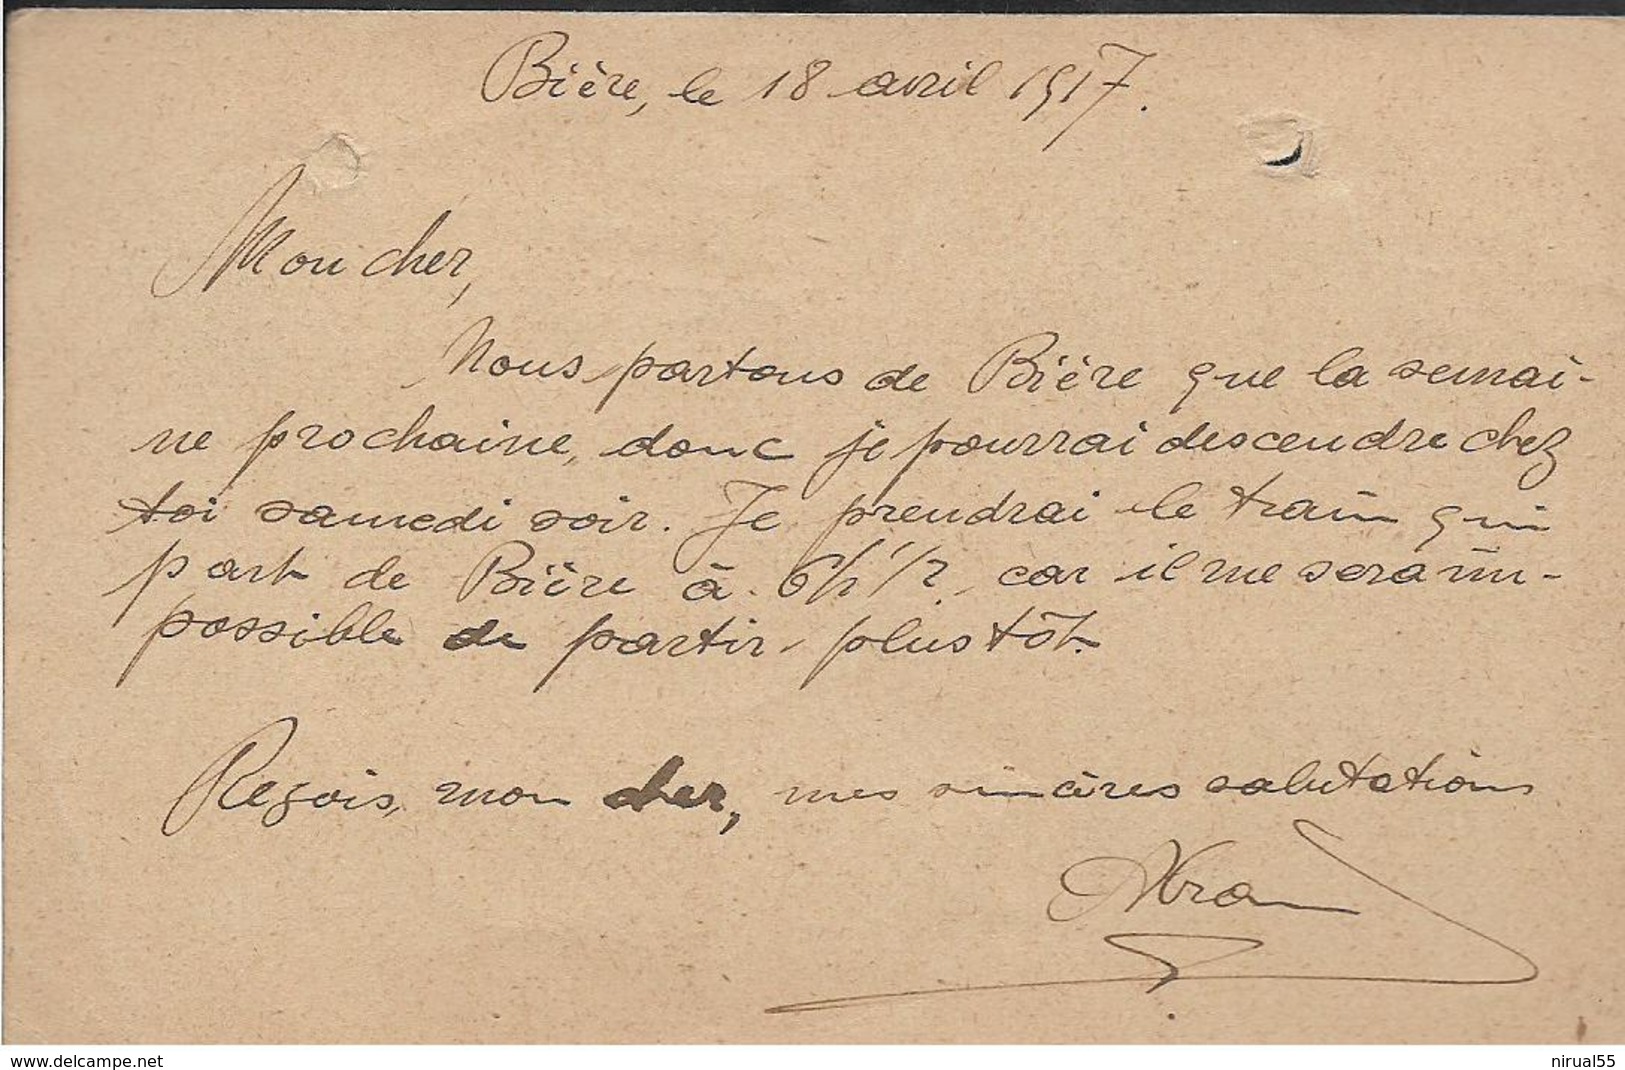 Bière, le 18 avril 1917.
Mon cher,
Nous partons de Bière que la semai-
ne prochaine, donc je pourrai descendre chez
toi samedi soir. Je prendrai le train qui
part de Bière à 6h 1/2, car il me sera im-
possible de partir plus tôt.
Reçois, mon cher, mes sincères salutations
www.delcampe.net
nirual55